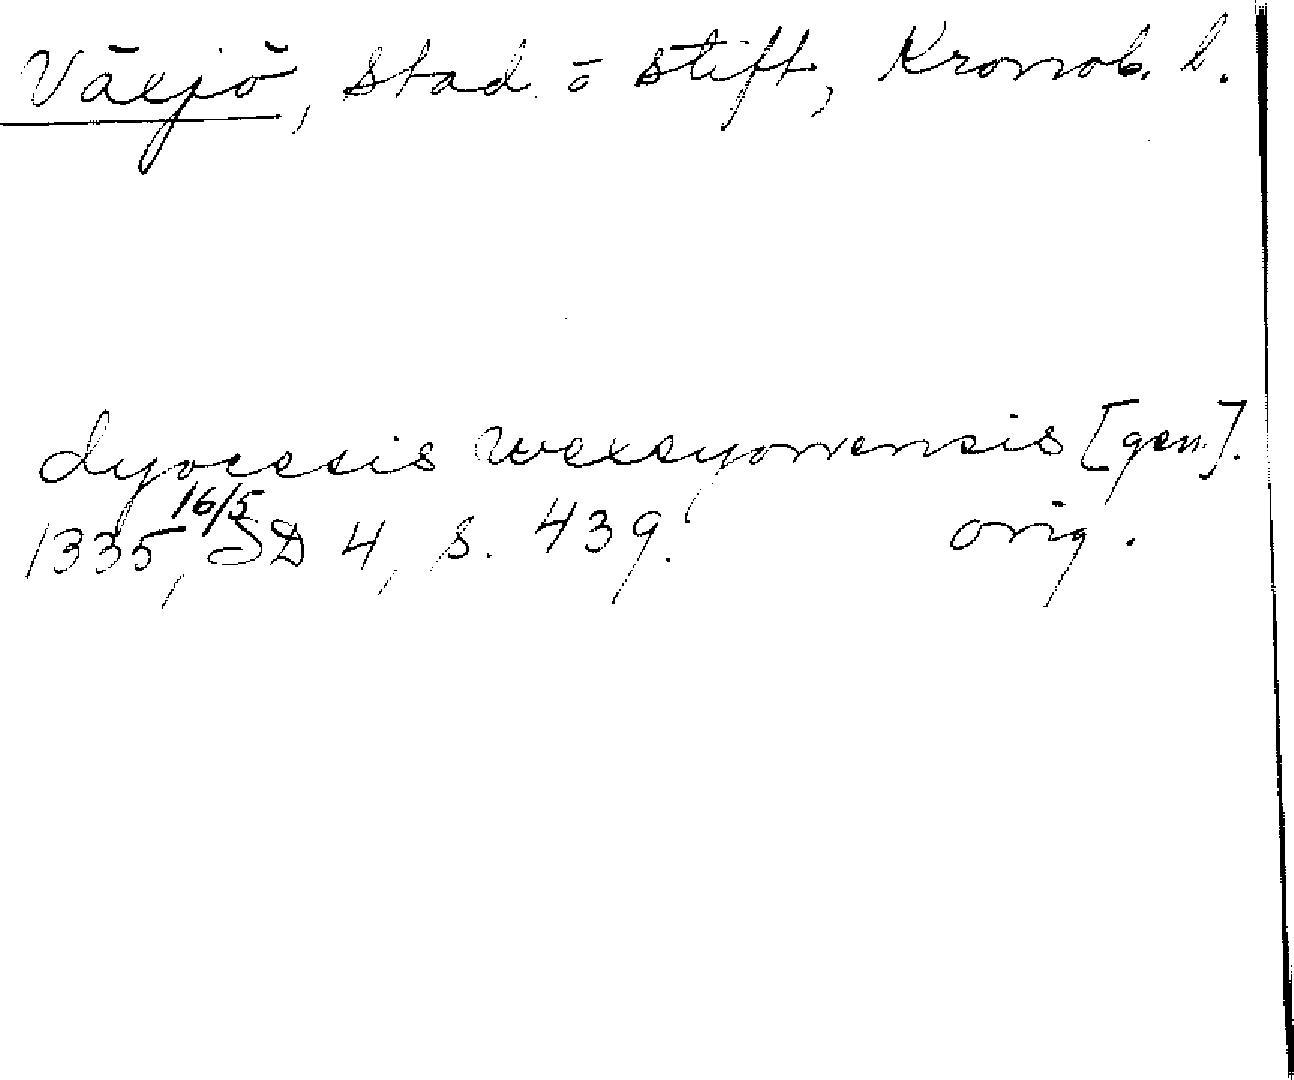 Växjö, stad o stift, Kronob. l.
dyocesis wexsyonensis [gen].
1335 16/5, SD 4, s. 439. orig.